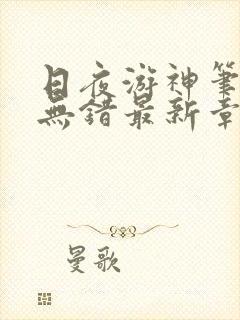 日夜游神筆
無錯最新章
曼歌